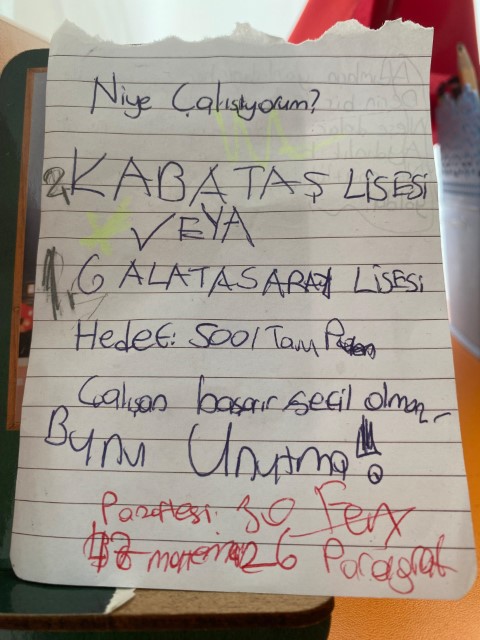 Niye Çalışıyorum?
2. KABATAŞ LİSESİ
VEYA
1. GALATASARAY LİSESİ
Hedef: 500/Tam Puan
Çalışan başarır sefil olmaz
Bunu Unutma!!
Pazartesi 30 Fen
26 Paragraf